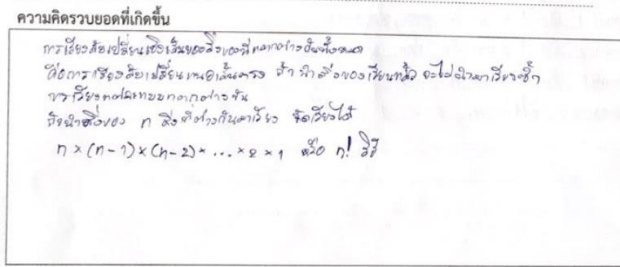 ความคิดรวบยอดที่เกิดขึ้น
การเรียงสับเปลี่ยนเชิงเส้นของสิ่งของที่แตกต่างกันทั้งหมด
คือการเรียงสับเปลี่ยนตามเส้นตรง ถ้านำสิ่งของเรียงแล้ว จะไม่นำมาเรียงซ้ำ
การเรียงแต่ละแบบแตกต่างกัน
ถ้านำสิ่งของ n สิ่งที่ต่างกันมาเรียง จัดเรียงได้
n × (n-1) × (n-2) × ... × 2 × 1 หรือ n! วิธี